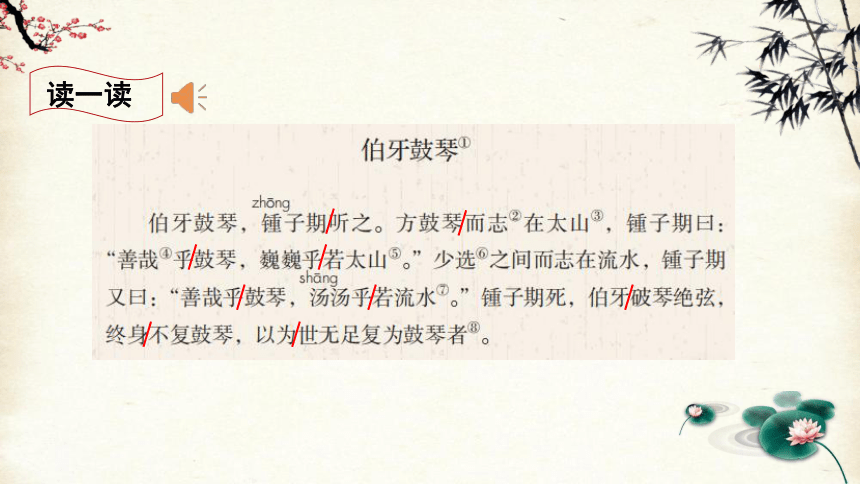 读一读
伯牙鼓琴①
zhōng
伯牙鼓琴，锺子期/听之。方鼓琴/而志②在太山③，锺子期曰：
“善哉④乎/鼓琴，巍巍乎/若太山⑤。”少选⑥之间而志在流水，锺子期
shāng
又曰：“善哉乎/鼓琴，汤汤乎/若流水⑦。”锺子期死，伯牙/破琴绝弦，
终身/不复鼓琴，以为/世无足复为鼓琴者⑧。